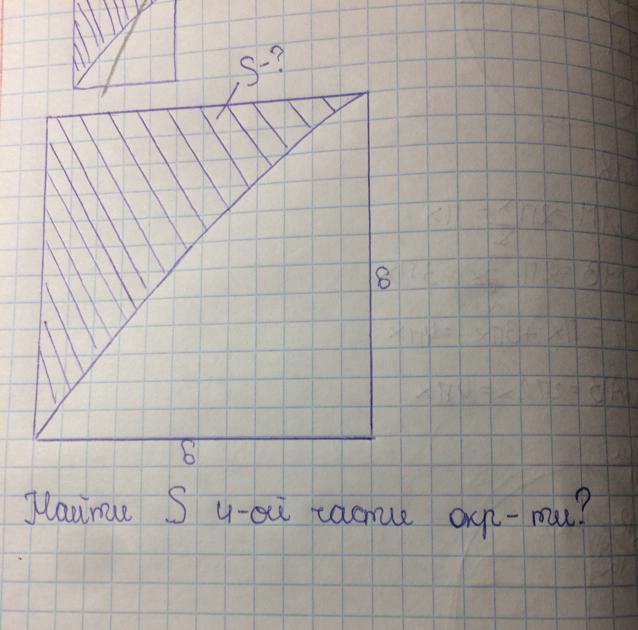 S-?
8
8
Найти S 4-ой части окр-ти?